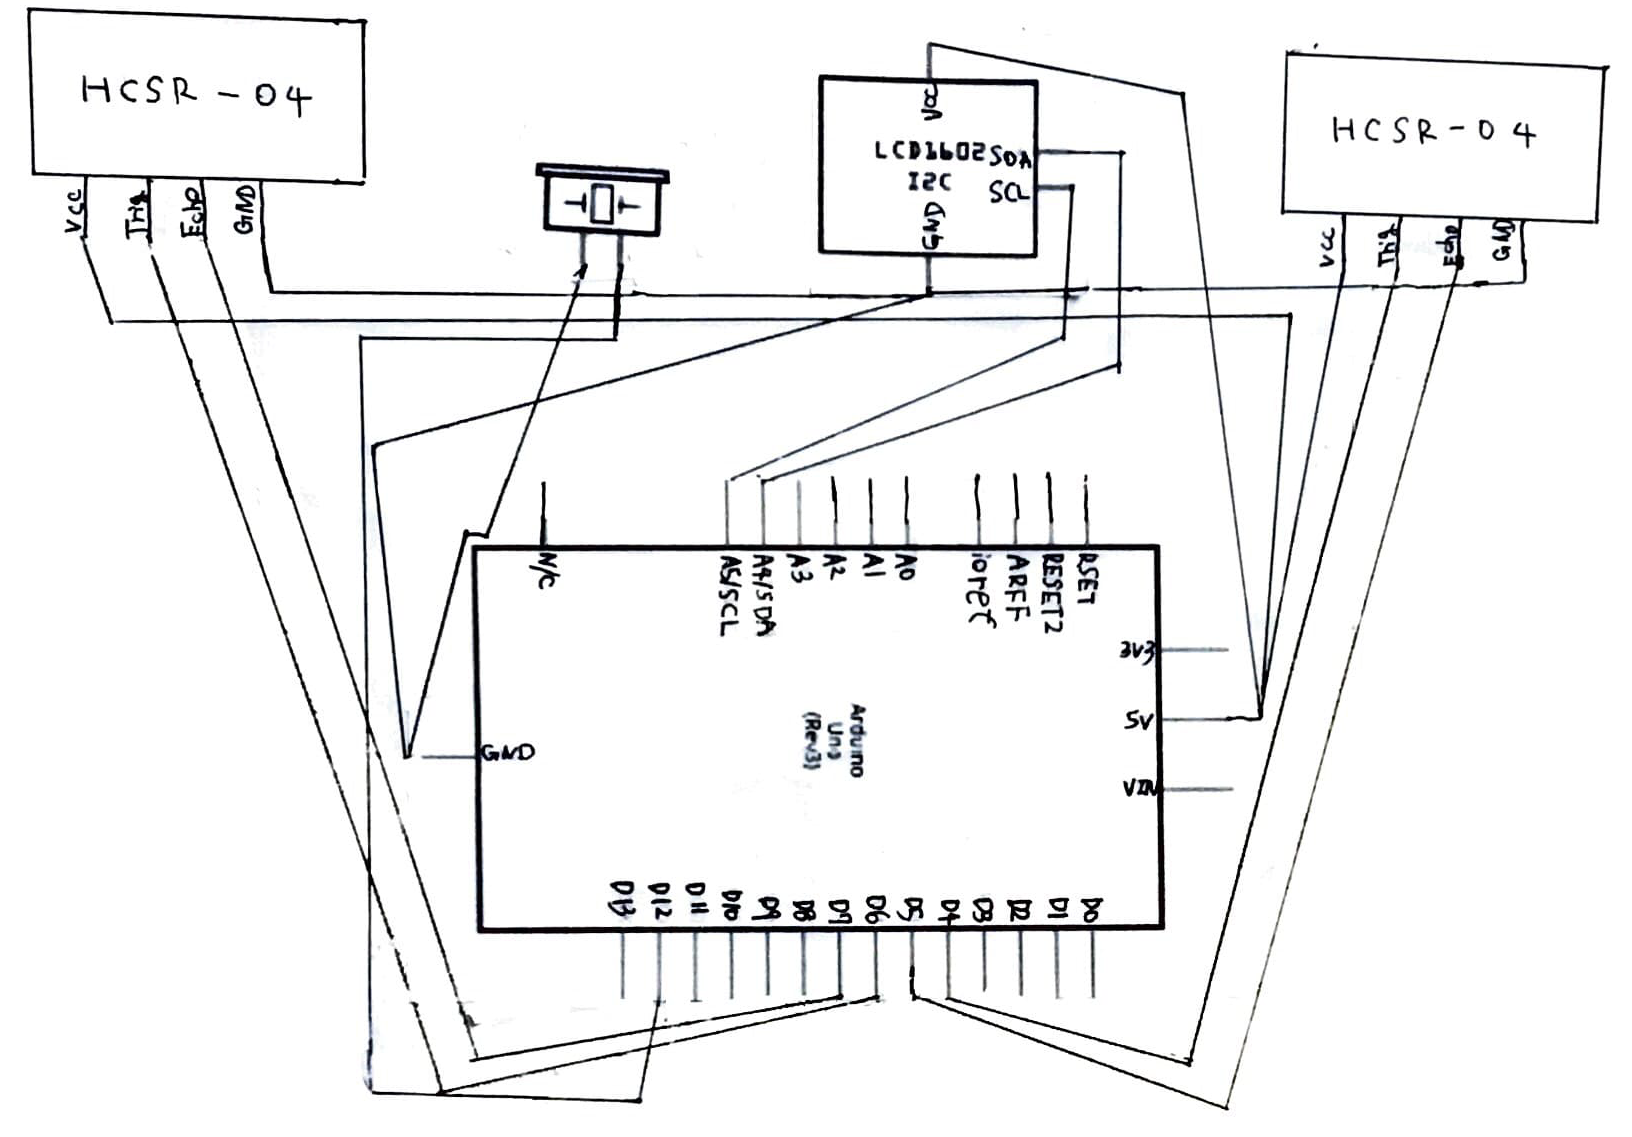 HCSR-04
VCC
Trig
Echo
GND
VCC
LCD1602
I2C
SDA
SCL
GND
HCSR-04
VCC
Trig
Echo
GND
N/C
A5/SCL
A4/SDA
A3
A2
A1
A0
ioref
ARFF
RESET2
RSET
3V3
5V
VIN
GND
Arduino
Uno
(Rev3)
D13
D12
D11
D10
D9
D8
D7
D6
D5
D4
D3
D2
D1
D0